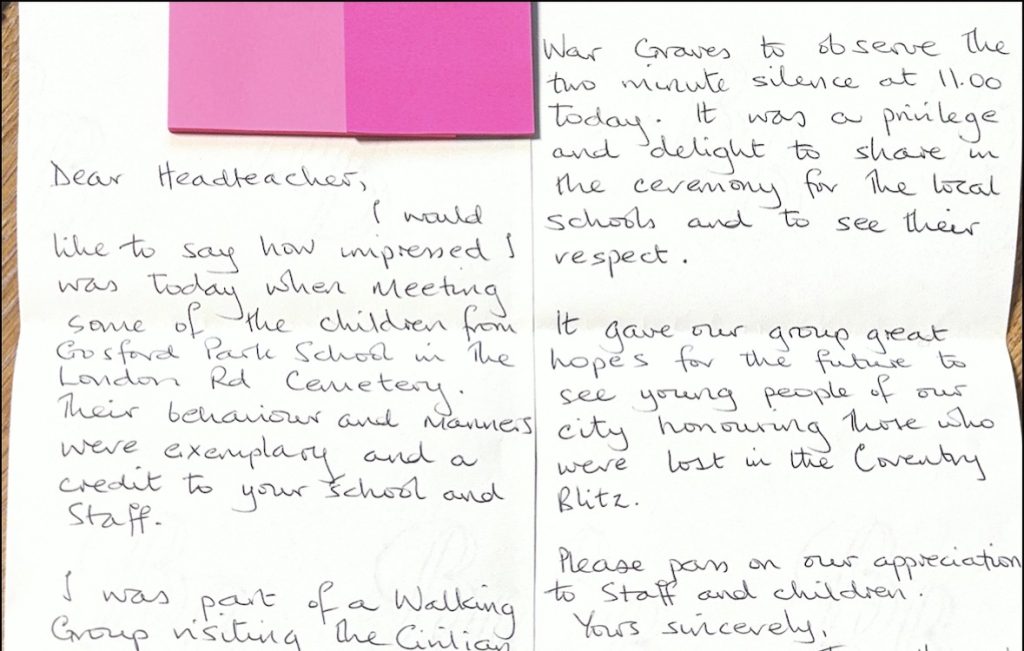 Dear Headteacher,
I would
like to say how impressed I
was today when meeting
some of the children from
Gosford Park School in the
London Rd Cemetery.
Their behaviour and manners
were exemplary and a
credit to your school and
Staff.
I was part of a Walking
Group visiting the Civilian
War Graves to observe the
two minute silence at 11.00
today. It was a privilege
and delight to share in
the ceremony for the local
schools and to see their
respect.
It gave our group great
hopes for the future to
see young people of our
city honouring those who
were lost in the Coventry
Blitz.
Please pass on our appreciation
to Staff and children.
Yours sincerely,